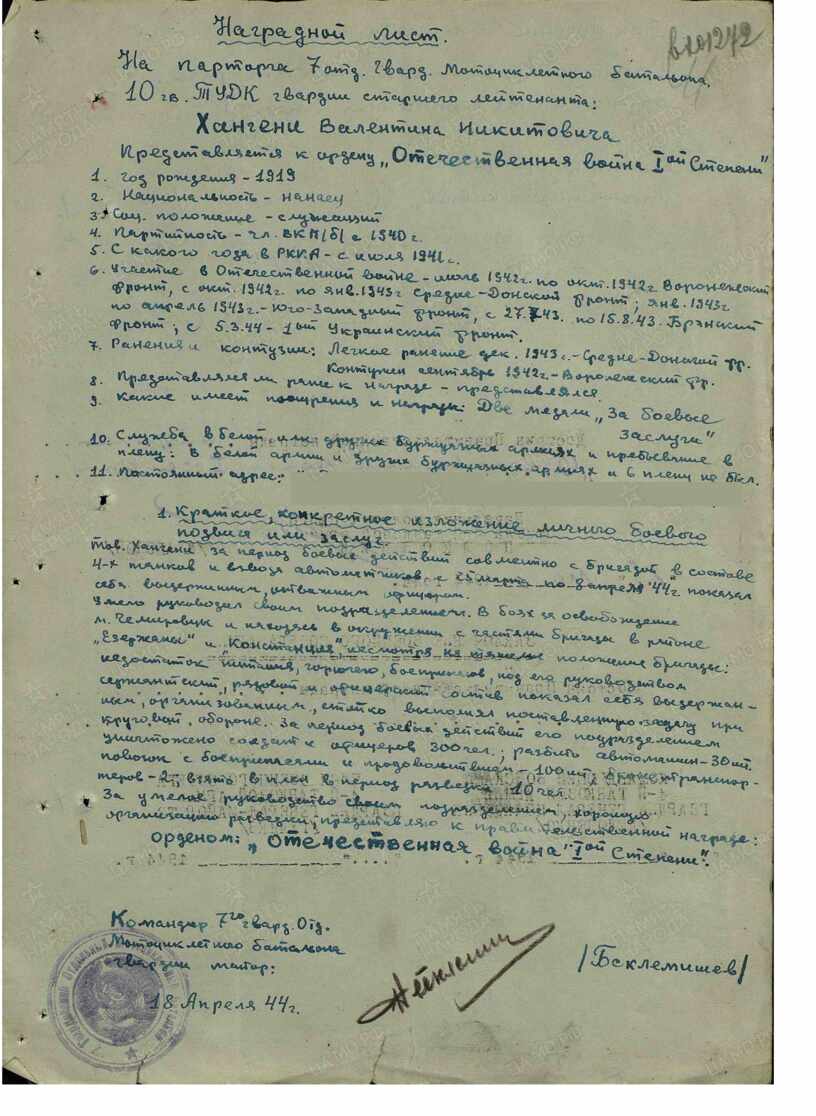 Наградной лист.
На парторга 7 отд. Гвард. Мотоциклетного батальона.
10 гв. ТУДК гвардии старшего лейтенанта:
Хангени Валентина Никитовича
Представляется к ордену „Отечественная война Iой Степени"
1. год рождения - 1919
2. Национальность - нанаец
3. Соц. положение - служащий
4. Партийность - чл. ВКП/б/ с 1940 г.
5. С какого года в РККА - с июля 1941 г.
6. Участие в Отечественной войне - июль 1942 г. по окт. 1942 г Воронежский
фронт, с окт. 1942 г. по янв. 1943 г Средне-Донской фронт; янв. 1943 г
по апрель 1943 г. - Юго-Западный фронт, с 27. 43. по 15.8.43. Брянский
фронт; с 5.3.44 - 1ый Украинский фронт.
7. Ранения и контузии: Легкое ранение дек. 1943 г. - Средне-Донской фр.
Контужен сентябрь 1942 г. - Воронежский фр.
8. Представлялся ли ранее к награде - представлялся
9. Какие имеет поощрения и награды: Две медали „За боевые
заслуги"
10. Служба в белой или других буржуазных армиях и пребывание в
плену: в белой армии и других буржуазных армиях и в плену не был.
11. Постоянный адрес:
1. Краткое, конкретное изложение личного боевого
подвига или заслуг.
Тов. Хангени за период боевых действий совместно с бригадой в составе
4-х танков и взвода автоматчиков с 25 марта по 8 апреля 44 г. показал
себя выдержанным, отважным офицером.
Умело руководил своим подразделением. В боях за освобождение
м. Чемировцы и находясь в окружении с частями бригады в районе
„Езержаны" и „Констанция", несмотря на тяжелое положение бригады:
недостаток питания, горючего, боеприпасов, под его руководством
сержантский, рядовой и офицерский состав показал себя выдержан-
ным, организованным, стойко выполнял поставленную задачу при
круговой обороне. За период боевых действий его подразделением
уничтожено солдат и офицеров 300 чел.; разбито автомашин - 30 шт.
повозок с боеприпасами и продовольствием - 100 шт; бронетранспор-
теров - 2; взято в плен в период разведки - 10 чел.
За умелое руководство своим подразделением, хорошую
организацию разведки, представляю к правительственной награде:
орденом: „Отечественная война" Iой Степени".
Командир 7го гвард. Отд.
Мотоциклетного батальона
гвардии майор:
/Беклемишев/
18 Апреля 44 г.